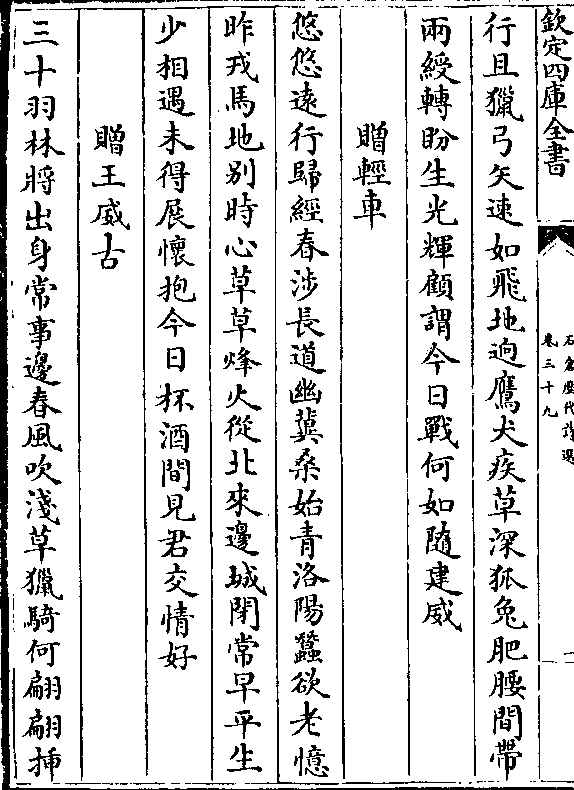 欽定四庫全書
石倉歷代詩選
卷三十九
行且獵弓矢速如飛地逈鷹犬疾草深狐兔肥腰間帶
兩綬轉盼生光輝顧謂今日戰何如隨建威
贈輕車
悠悠遠行歸經春涉長道幽冀桑始青洛陽蠶欲老憶
昨戎馬地别時心草草烽火從北來邊城閉常早平生
少相遇未得展懷抱今日杯酒間見君交情好
贈王威古
三十羽林將出身常事邊春風吹淺草獵騎何翩翩插